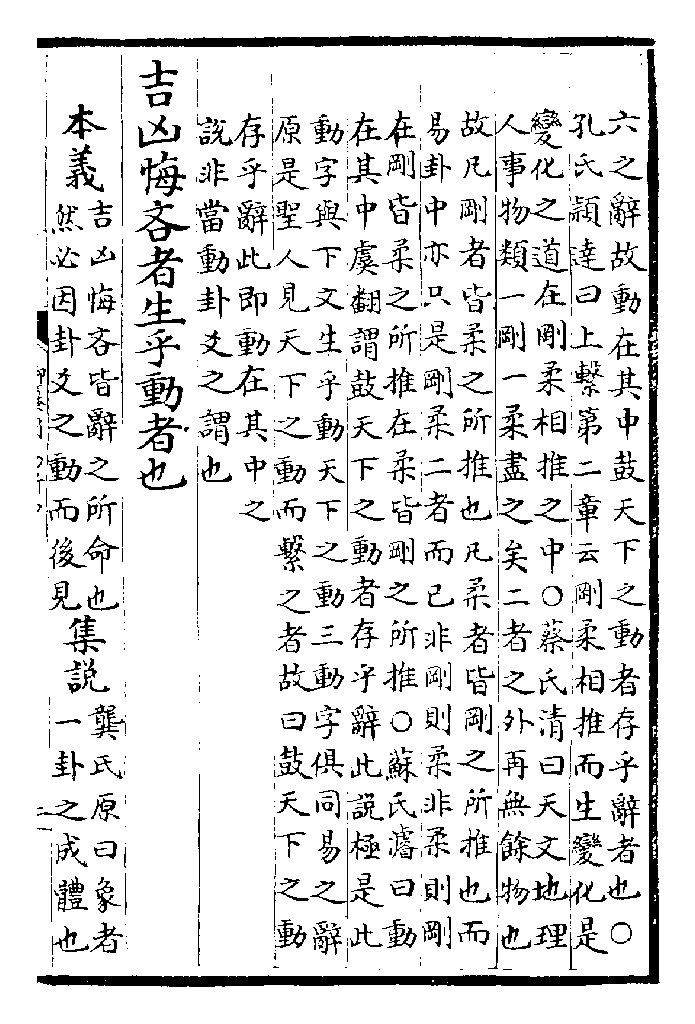 六之辭故動在其中鼓天下之動者存乎辭者也○
孔氏穎達曰上繫第二章云剛柔相推而生變化是
變化之道在剛柔相推之中○蔡氏清曰天文地理
人事物類一剛一柔盡之矣二者之外再無餘物也
故凡剛者皆柔之所推也凡柔者皆剛之所推也而
易卦中亦只是剛柔二者而已非剛則柔非柔則剛
在剛皆柔之所推在柔皆剛之所推○蘇氏濬曰動
在其中虞翻謂鼓天下之動者存乎辭此説極是此
動字與下文生乎動天下之動三動字俱同易之辭
原是聖人見天下之動而繫之者故曰鼓天下之動
存乎辭此即動在其中之
説非當動卦爻之謂也
吉凶悔吝者生乎動者也
本義
吉凶悔吝皆辭之所命也
然必因卦爻之動而後見
集説
龔氏原曰象者
一卦之成體也